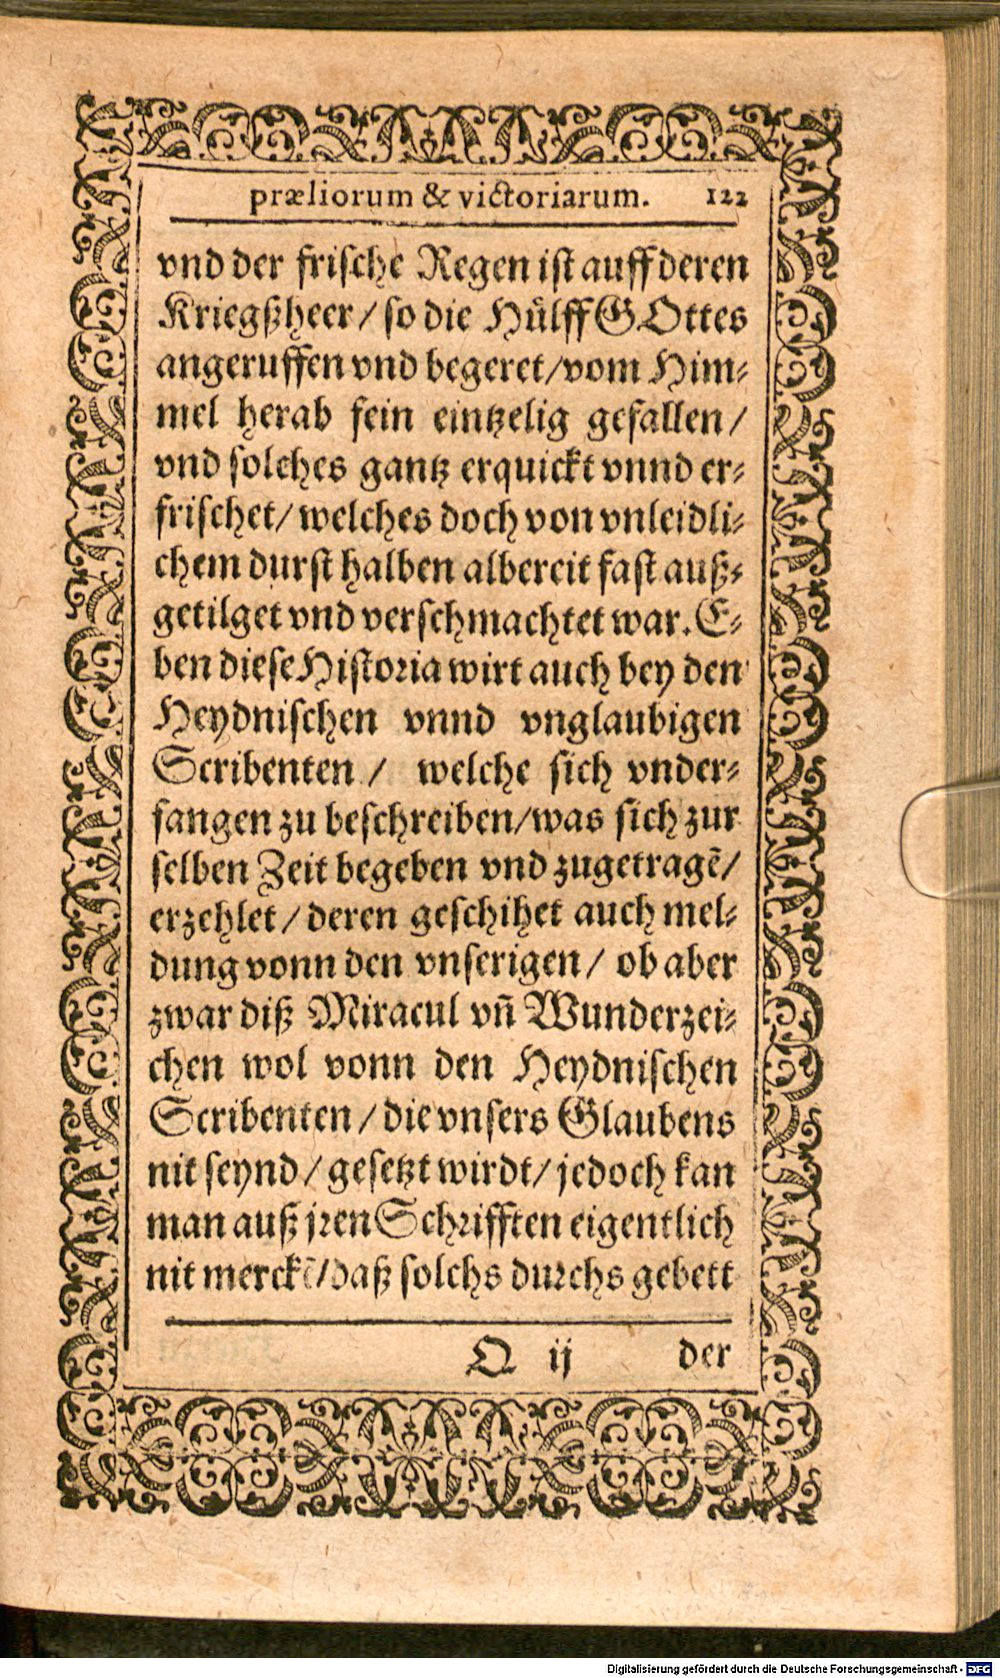 præliorum & victoriarum. 122
vnd der frische Regen ist auff deren
Kriegßheer / so die Hülff GOttes
angeruffen vnd begeret / vom Him⸗
mel herab fein eintzelig gefallen /
vnd solches gantz erquickt vnnd er⸗
frischet / welches doch von vnleidli⸗
chem durst halben albereit fast auß⸗
getilget vnd verschmachtet war. E⸗
ben diese Historia wirt auch bey den
Heydnischen vnnd vnglaubigen
Scribenten / welche sich vnder⸗
fangen zu beschreiben / was sich zur
selben Zeit begeben vnd zugetragẽ /
erzehlet / deren geschihet auch mel⸗
dung vonn den vnserigen / ob aber
zwar diß Miracul vñ Wunderzei⸗
chen wol vonn den Heydnischen
Scribenten / die vnsers Glaubens
nit seynd / gesetzt wirdt / jedoch kan
man auß jren Schrifften eigentlich
nit merckẽ / daß solchs durchs gebett
Q ij der
Digitalisierung gefördert durch die Deutsche Forschungsgemeinschaft - DFG